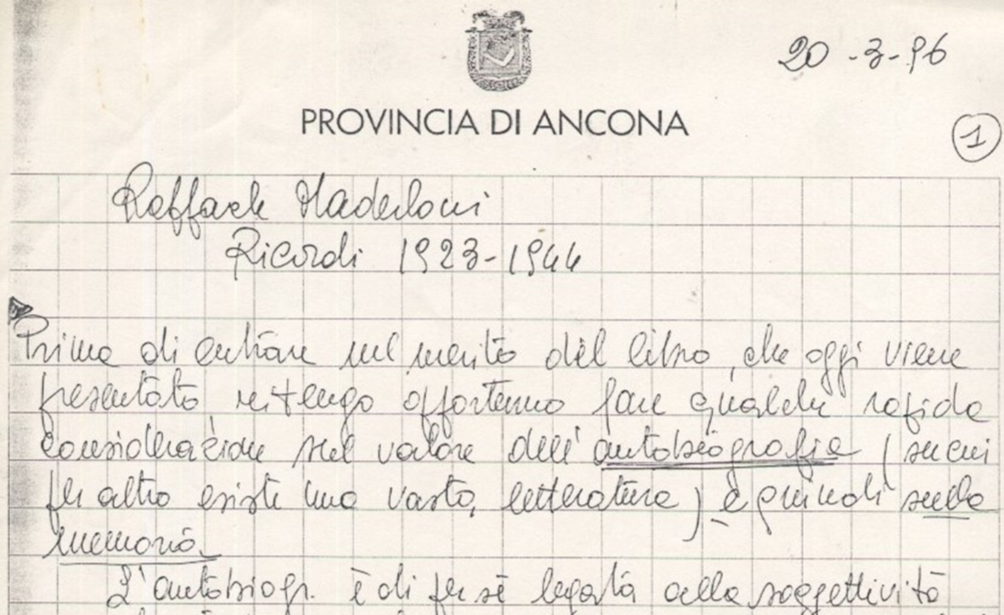 20-3-96
PROVINCIA DI ANCONA
1
Raffaele Maderloni
Ricordi 1923-1944
Prima di entrare nel merito del libro, che oggi viene
presentato, ritengo opportuno fare qualche rapida
considerazione sul valore dell'autobiografia (su cui
per altro esiste una vasta letteratura) e quindi sulla
memoria.
L'autobiogr. è di per sé legata alla soggettività